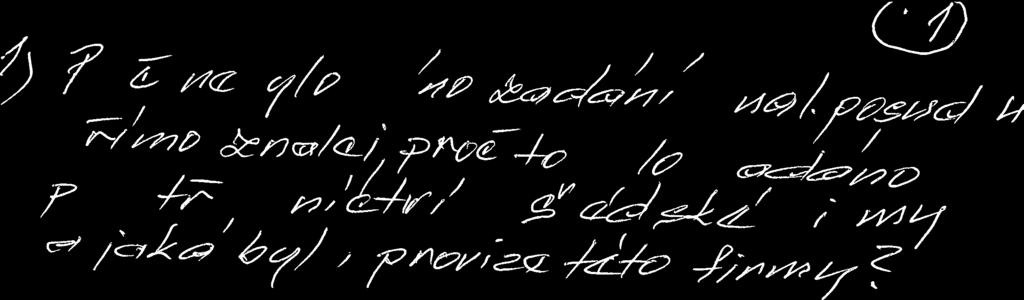 1)
1) P č ne ylo no zadání nal. posud u
římo znalci, proč to lo adáno
p tř nictví š édské i my
a jaká byl, provize této firmy?